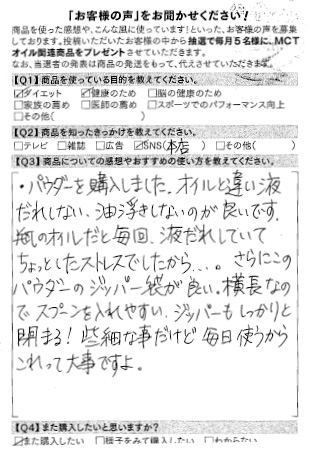 「お客様の声」をお聞かせください！
商品を使った感想や、こんな風に使っています！といった、お客様の声を募集
しております。投稿いただいたお客様の中から抽選で毎月５名様に、MCT
オイル関連商品をプレゼントさせていただきます。
なお、当選者の発表は商品の発送をもって、代えさせていただきます。
【Q1】商品を使っている目的を教えてください。
☑ダイエット ☑健康のため □脳の健康のため
□家族の薦め □医師の薦め □スポーツでのパフォーマンス向上
□その他( )
【Q2】商品を知ったきっかけを教えてください。
□テレビ □雑誌 □広告 ☑SNS(本店) □その他( )
【Q3】商品についての感想やおすすめの使い方を教えてください。
・パウダーを購入しました。オイルと違い液
だれしない、油浮きしないのが良いです。
瓶のオイルだと毎回、液だれしていて
ちょっとしたストレスでしたから...。さらにこの
パウダーのジッパー袋が良い。横長なの
でスプーンを入れやすい。ジッパーもしっかりと
閉まる！些細な事だけど毎日使うから
これって大事ですよ。
【Q4】また購入したいと思いますか？
☑また購入したい □様子をみて購入したい □わからない